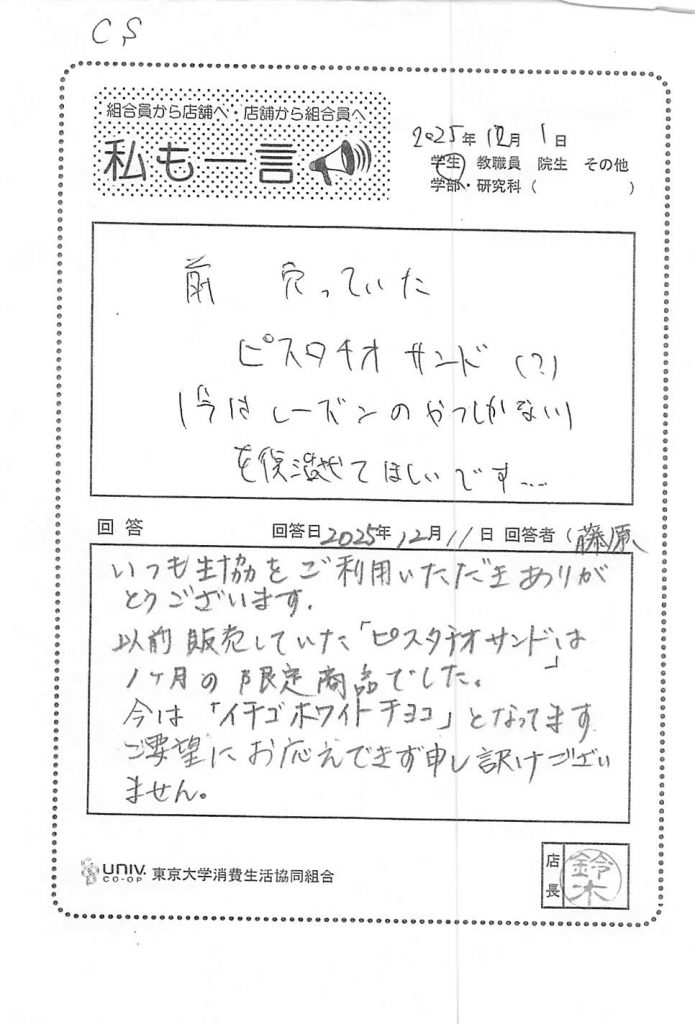 CS
組合員から店舗へ・店舗から組合員へ
私も一言
2025年12月1日
学生 教職員 院生 その他
学部・研究科( )
前 売っていた
ピスタチオサンド(?)
(今はレーズンのやつしかない)
を復活させてほしいです...
回答 回答日2025年12月11日 回答者(藤原)
いつも生協をご利用いただきありが
とうございます.
以前販売していた「ピスタチオサンド」は
1ヶ月の限定商品でした。
今は「イチゴホワイトチョコ」となってます
ご要望にお応えできず申し訳けござい
ません。
UNIV. CO-OP 東京大学消費生活協同組合
店長 鈴木